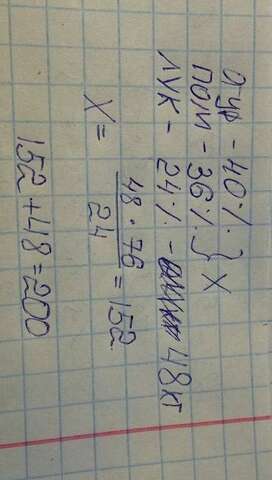 огур - 40%.
пом - 36%. } X
лук - 24%. - 48 кг
X = 48 · 76 / 24 = 152
152 + 48 = 200